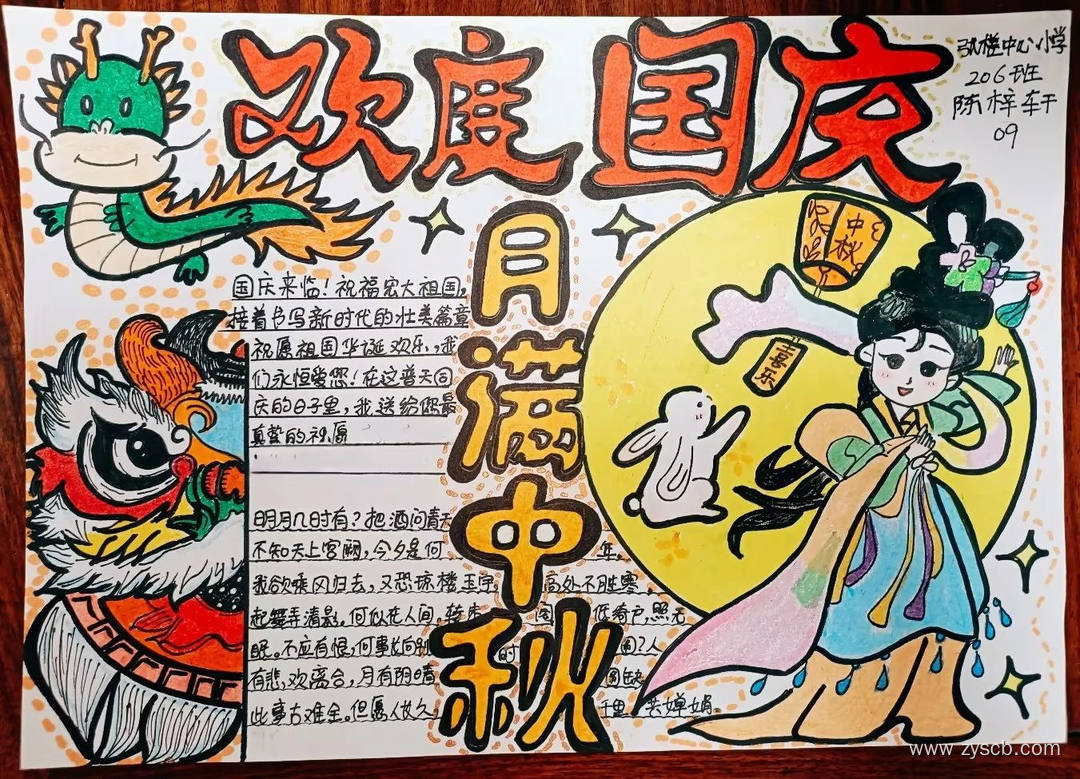 欢度国庆
中心小学
206班
陈梓轩
09
月满中秋
中秋
喜乐
国庆来临！祝福宏大祖国，
接着书写新时代的壮美篇章
祝愿祖国华诞欢乐，我
们永恒爱您！在这普天同
庆的日子里，我送给您最
真挚的祝愿
明月几时有？把酒问青天
不知天上宫阙，今夕是何 年。
我欲乘风归去，又恐琼楼玉宇， 高外不胜寒。
起舞弄清影，何似在人间。转朱 阁 低绮户，照无
眠。不应有恨，何事长向别 时 圆？人
有悲欢离合，月有阴晴 圆缺
此事古难全。但愿人长久， 千里 共婵娟。
www.zyscb.com